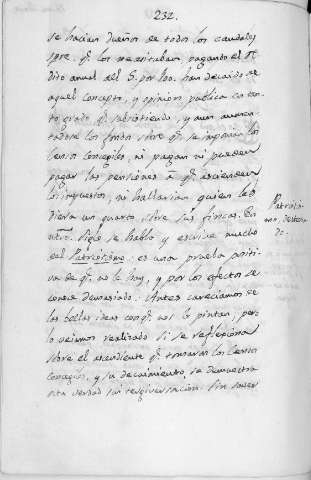 232.
se hacian dueños de todos los caudales
spre. q.e los necesitaban pagando el re
dito anual del 3. por 100. han decaido de
aquel concepto, y opinion publica en tan
to grado q.e subsistiendo, y aun aumen
tadose los fondos sobre q.e se imponian los
Censos concegiles, ni pagan ni pueden
pagar las pensiones à q.e ascienden
los impuestos, ni hallarian quien les
diera un quarto sobre sus fincas. En
ntro. Siglo se habla y escrive mucho
del Patriotismo: es una prueba positi
va de q.e no le hay, y por los efectos se
conoce demasiado. Antes careciamos de
las bellas ideas conq.e nos le pintan, pero
lo veiamos realizado si se reflexiona
sobre el ascendiente q.e tomaron los Censos
concegiles, y su decaimiento, se demuestra
esta verdad sin tergiversacion. Sin saver
Patriotis
mo, desterra
do.